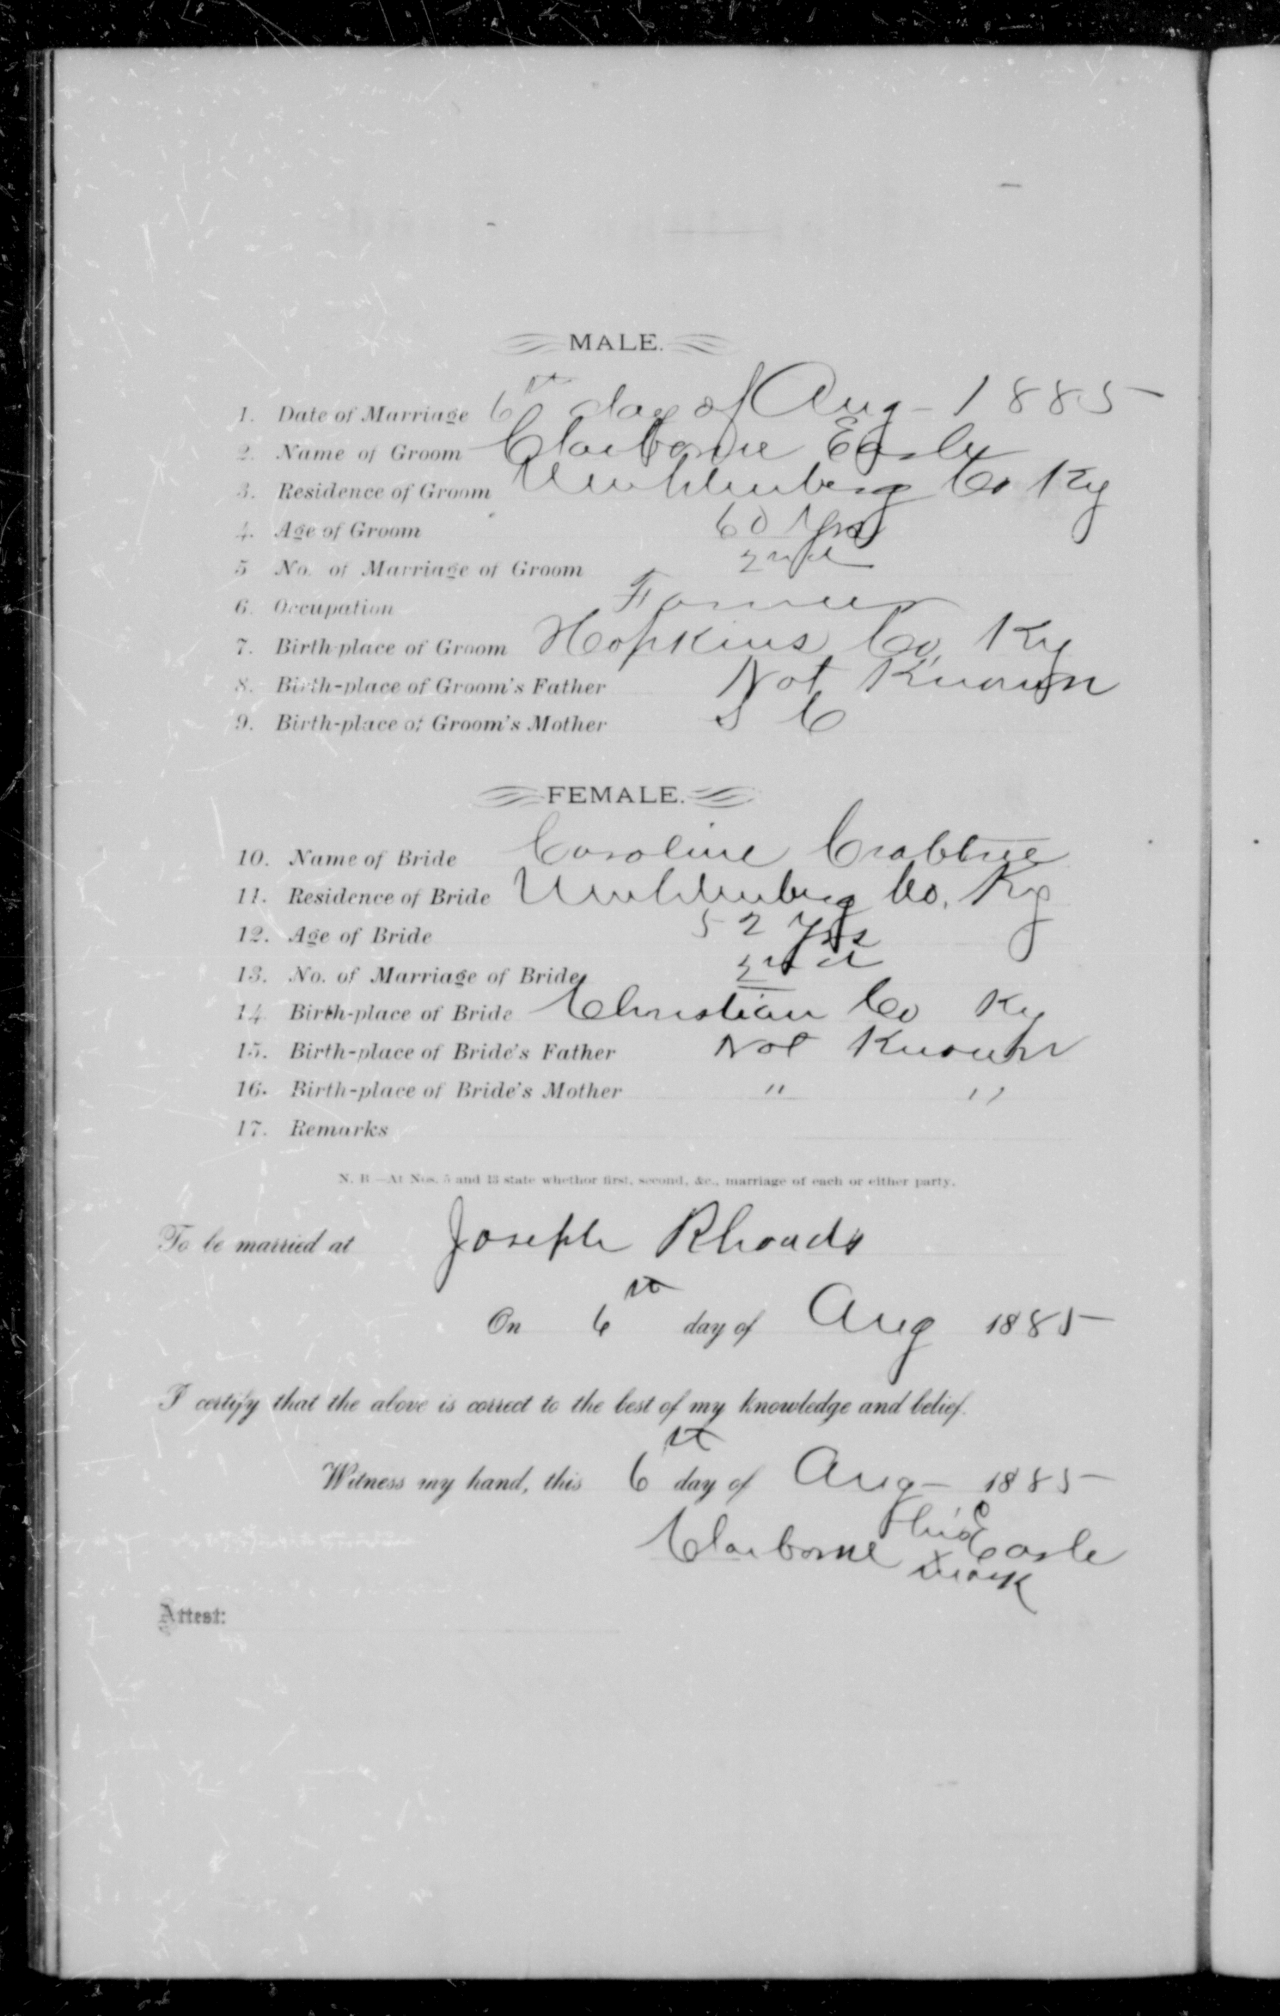 MALE.
1. Date of Marriage 6th day of Aug - 1885
2. Name of Groom Claiborne Easle
3. Residence of Groom Muhlenberg Co Ky
4. Age of Groom 60 Yrs
5 No. of Marriage of Groom 2nd
6. Occupation Farmer
7. Birth-place of Groom Hopkins Co, Ky
8. Birth-place of Groom's Father Not Known
9. Birth-place of Groom's Mother S C
FEMALE.
10. Name of Bride Caroline Crabtree
11. Residence of Bride Muhlenberg Co, Ky
12. Age of Bride 52 Yrs
13. No. of Marriage of Bride 2nd
14 Birth-place of Bride Christian Co Ky
15. Birth-place of Bride's Father Not Known
16. Birth-place of Bride's Mother " "
17. Remarks
N. B —At Nos. 5 and 13 state whether first, second, &c., marriage of each or either party.
To be married at Joseph Rhoads
On 6th day of Aug 1885
I certify that the above is correct to the best of my knowledge and belief.
Witness my hand, this 6th day of Aug - 1885
his
Claiborne x Easle
mark
Attest: